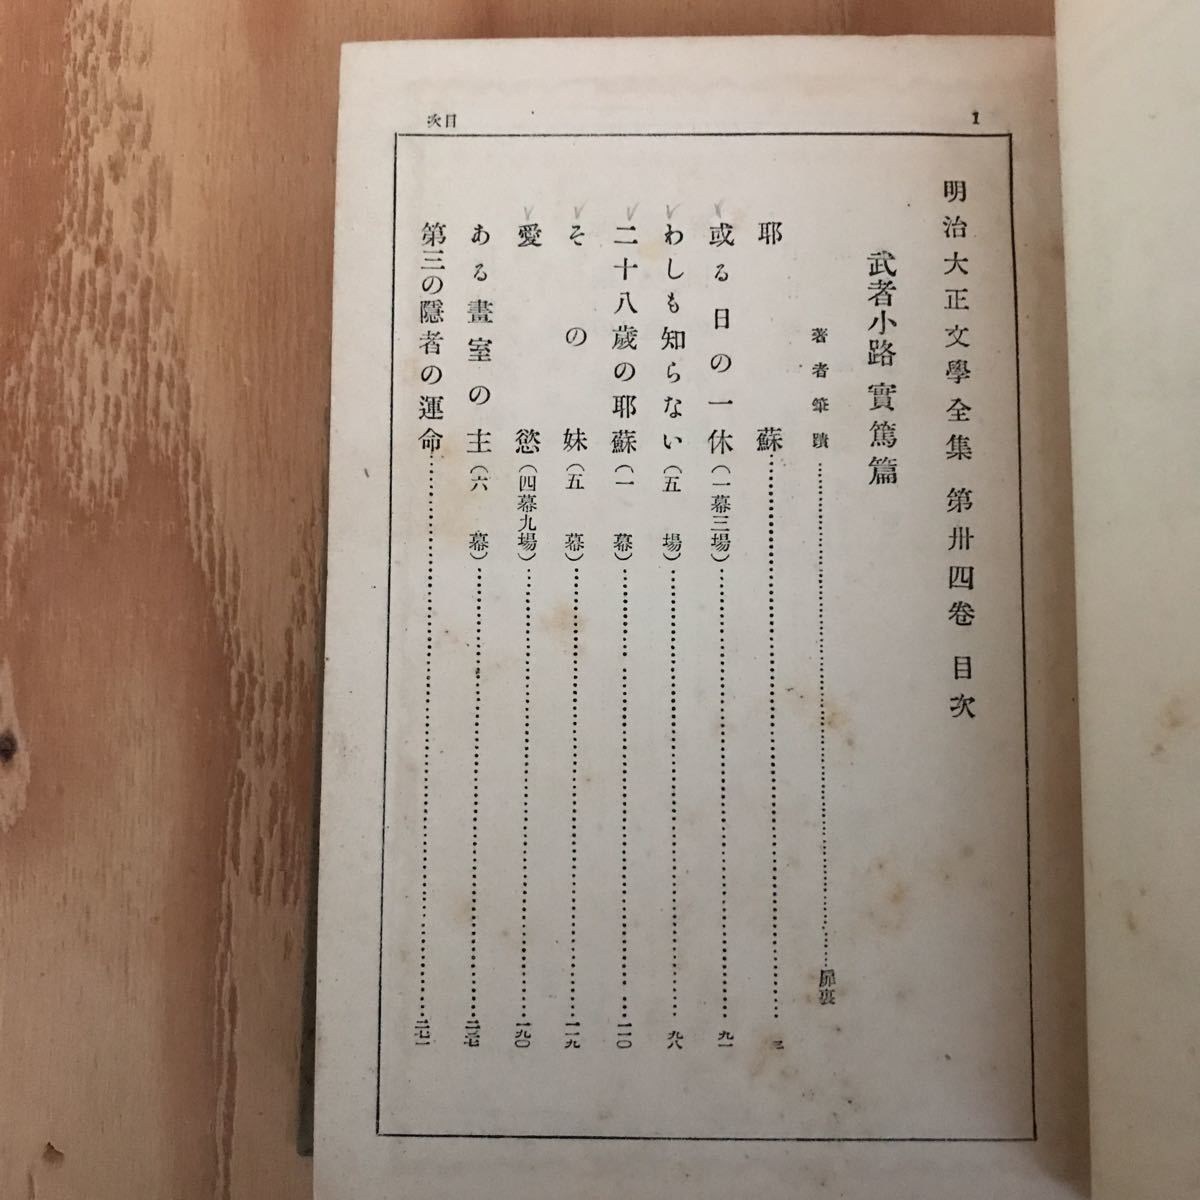 次目
1
明治大正文學全集 第卅四卷 目次
武者小路實篤篇
著者筆蹟……扉裏
耶蘇……三
或る日の一休(一幕三場)……九一
わしも知らない(五場)……九八
二十八歲の耶蘇(一幕)……一一〇
その妹(五幕)……一一九
愛慾(四幕九場)……一九〇
ある畫室の主(六幕)……二三七
第三の隱者の運命……二七一